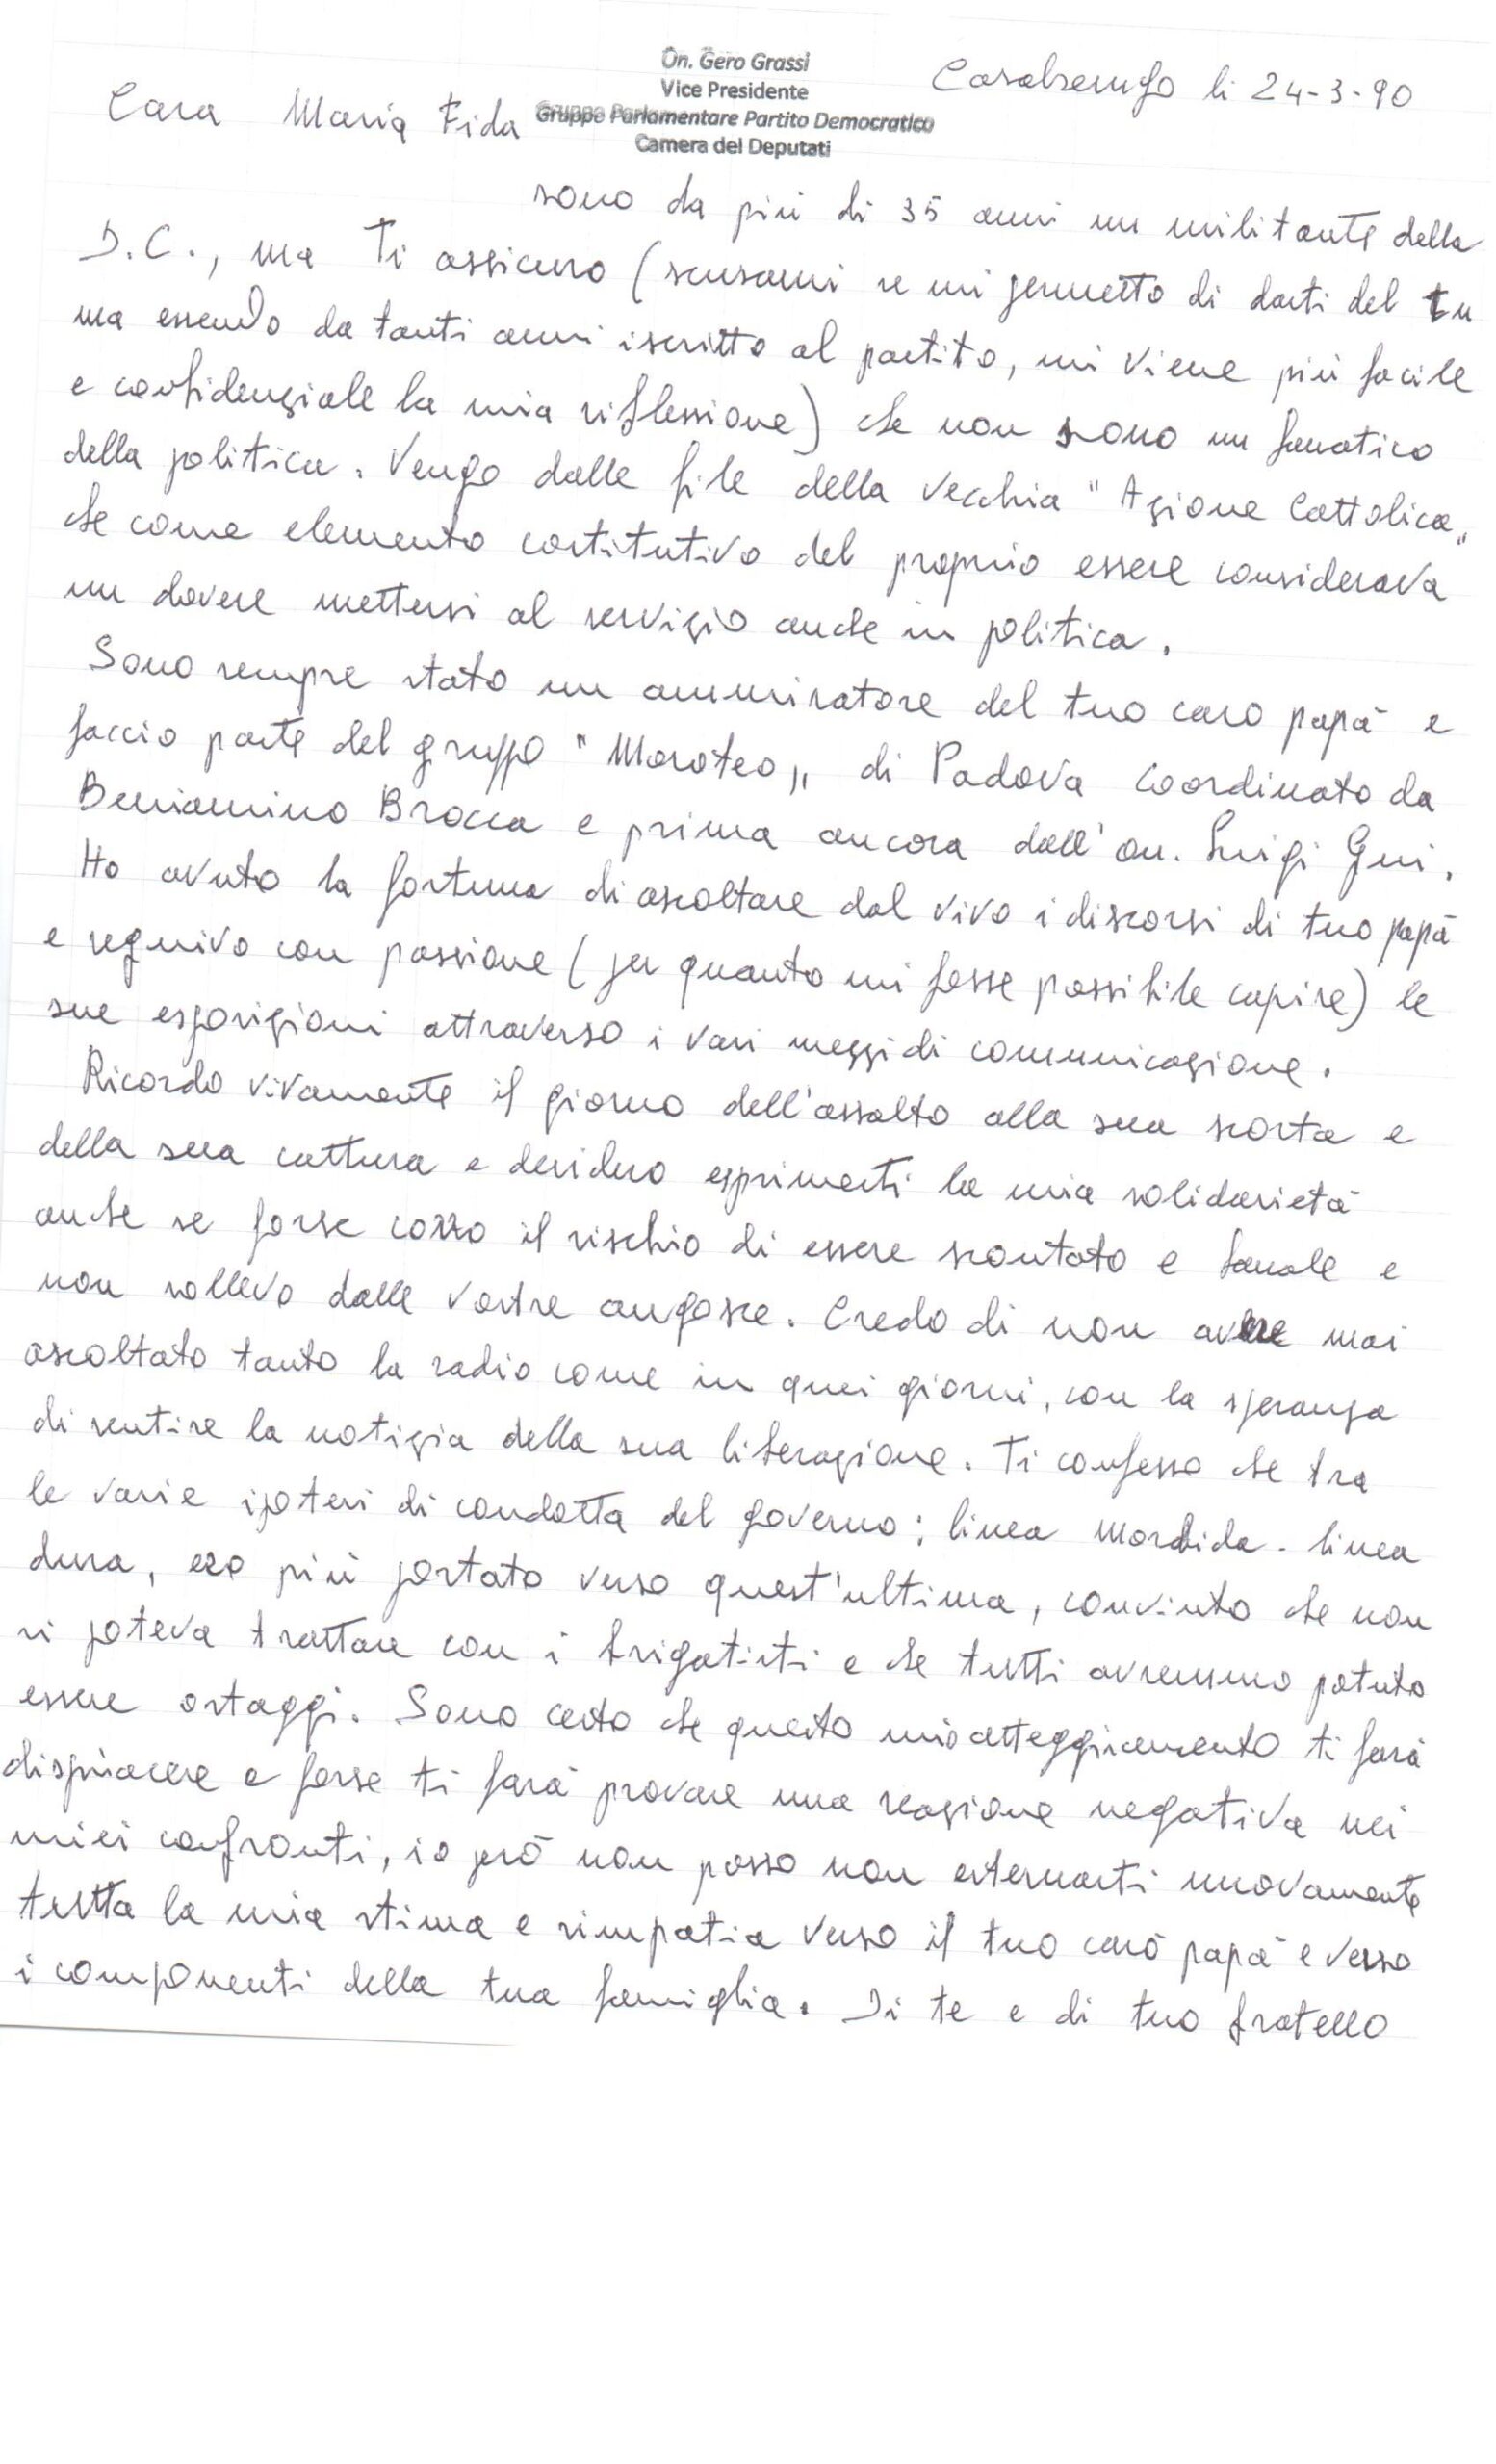 On. Gero Grassi
Vice Presidente
Gruppo Parlamentare Partito Democratico
Camera dei Deputati
Casalserugo li 24-3-90
Cara Maria Fida
sono da più di 35 anni un militante della
D.C., ma Ti assicuro (scusami se mi permetto di darti del tu
ma essendo da tanti anni iscritto al partito, mi viene più facile
e confidenziale la mia riflessione) che non sono un fanatico
della politica. Vengo dalle file della vecchia "Azione Cattolica"
che come elemento costitutivo del proprio essere considerava
un dovere mettersi al servizio anche in politica.
Sono sempre stato un ammiratore del tuo caro papà e
faccio parte del gruppo "Moroteo" di Padova coordinato da
Beniamino Brocca e prima ancora dall'on. Luigi Gui.
Ho avuto la fortuna di ascoltare dal vivo i discorsi di tuo papà
e seguivo con passione (per quanto mi fosse possibile capire) le
sue esposizioni attraverso i vari mezzi di comunicazione.
Ricordo vivamente il giorno dell'assalto alla sua scorta e
della sua cattura e desidero esprimerti la mia solidarietà
anche se forse corro il rischio di essere scontato e banale e
non sollevo dalle vostre angosce. Credo di non avere mai
ascoltato tanto la radio come in quei giorni, con la speranza
di sentire la notizia della sua liberazione. Ti confesso che tra
le varie ipotesi di condotta del governo: linea morbida - linea
dura, ero più portato verso quest'ultima, convinto che non
si poteva trattare con i brigatisti e che tutti avremmo potuto
essere ostaggi. Sono certo che questo mio atteggiamento ti farà
dispiacere e forse ti farà provare una reazione negativa nei
miei confronti, io però non posso non esternarti nuovamente
tutta la mia stima e simpatia verso il tuo caro papà e verso
i componenti della tua famiglia. Di te e di tuo fratello